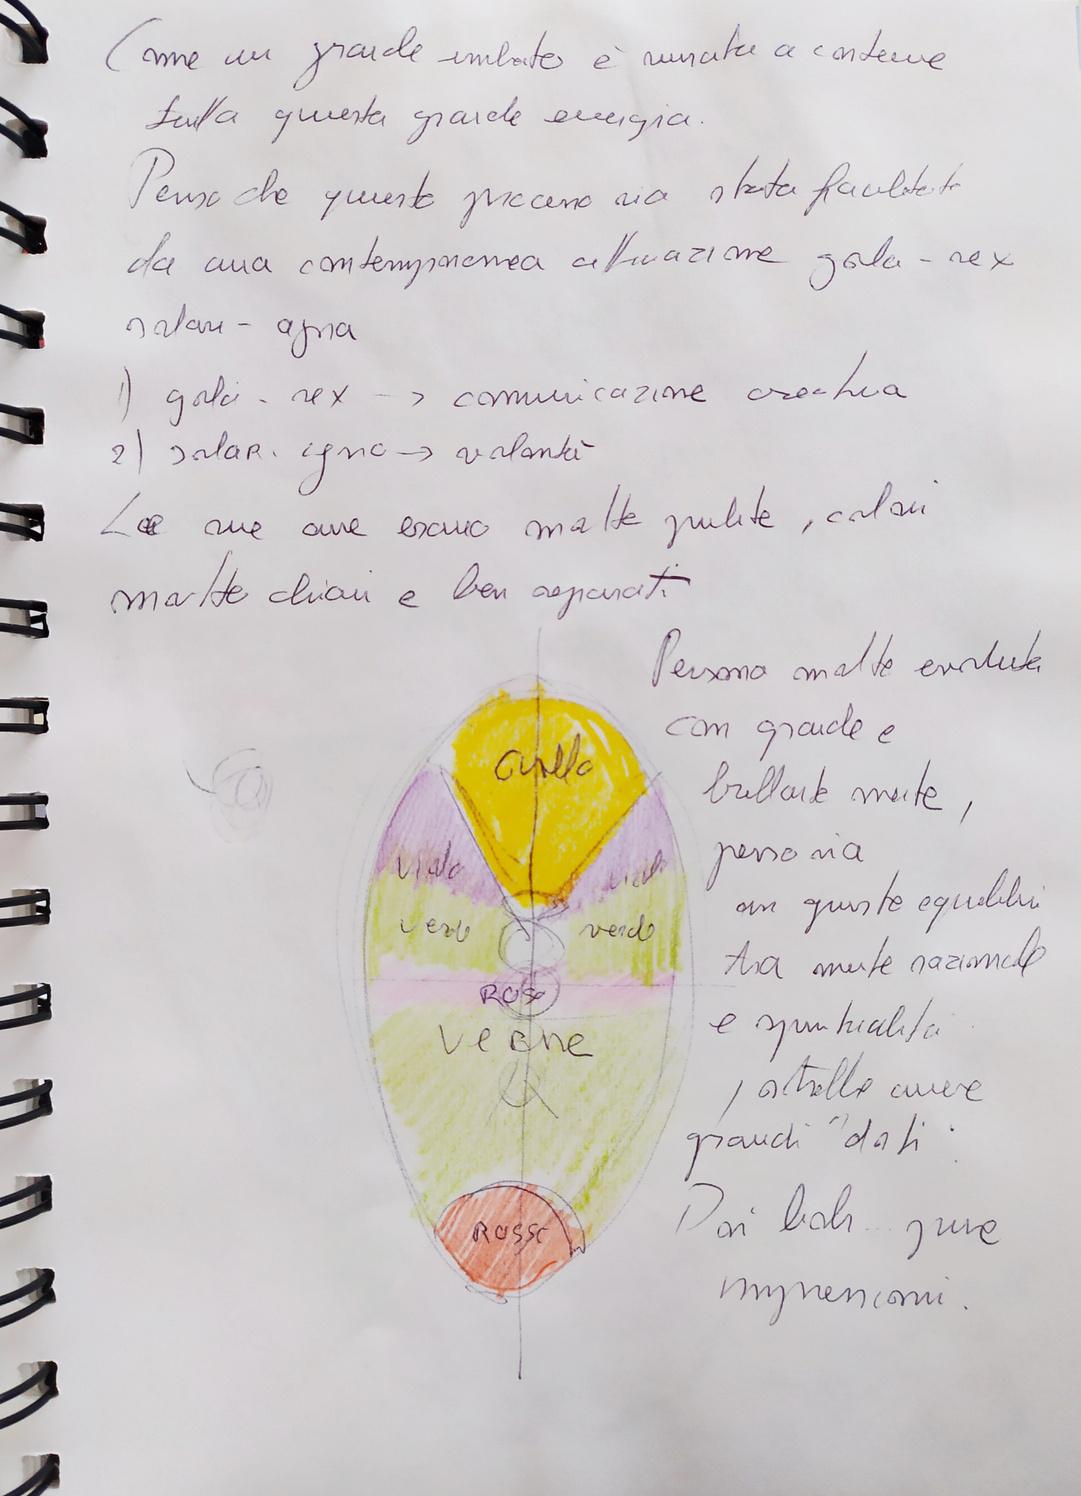 Come un grande imbuto è riuscita a contenere
tutta questa grande energia.
Penso che questo processo sia stato facilitato
da una contemporanea attivazione gola - sex
solare - agna
1) gola - sex -> comunicazione creativa
2) solar. agna -> volontà
Le sue aure erano molto pulite, colori
molto chiari e ben separati
Persona molto evoluta
con grande e
brillante mente,
penso sia
un giusto equilibrio
tra mente razionale
e spiritualità
, avere
grandi "doti".
giallo
viola
viola
verde
verde
ROSA
VERDE
ROSSO
impressioni.